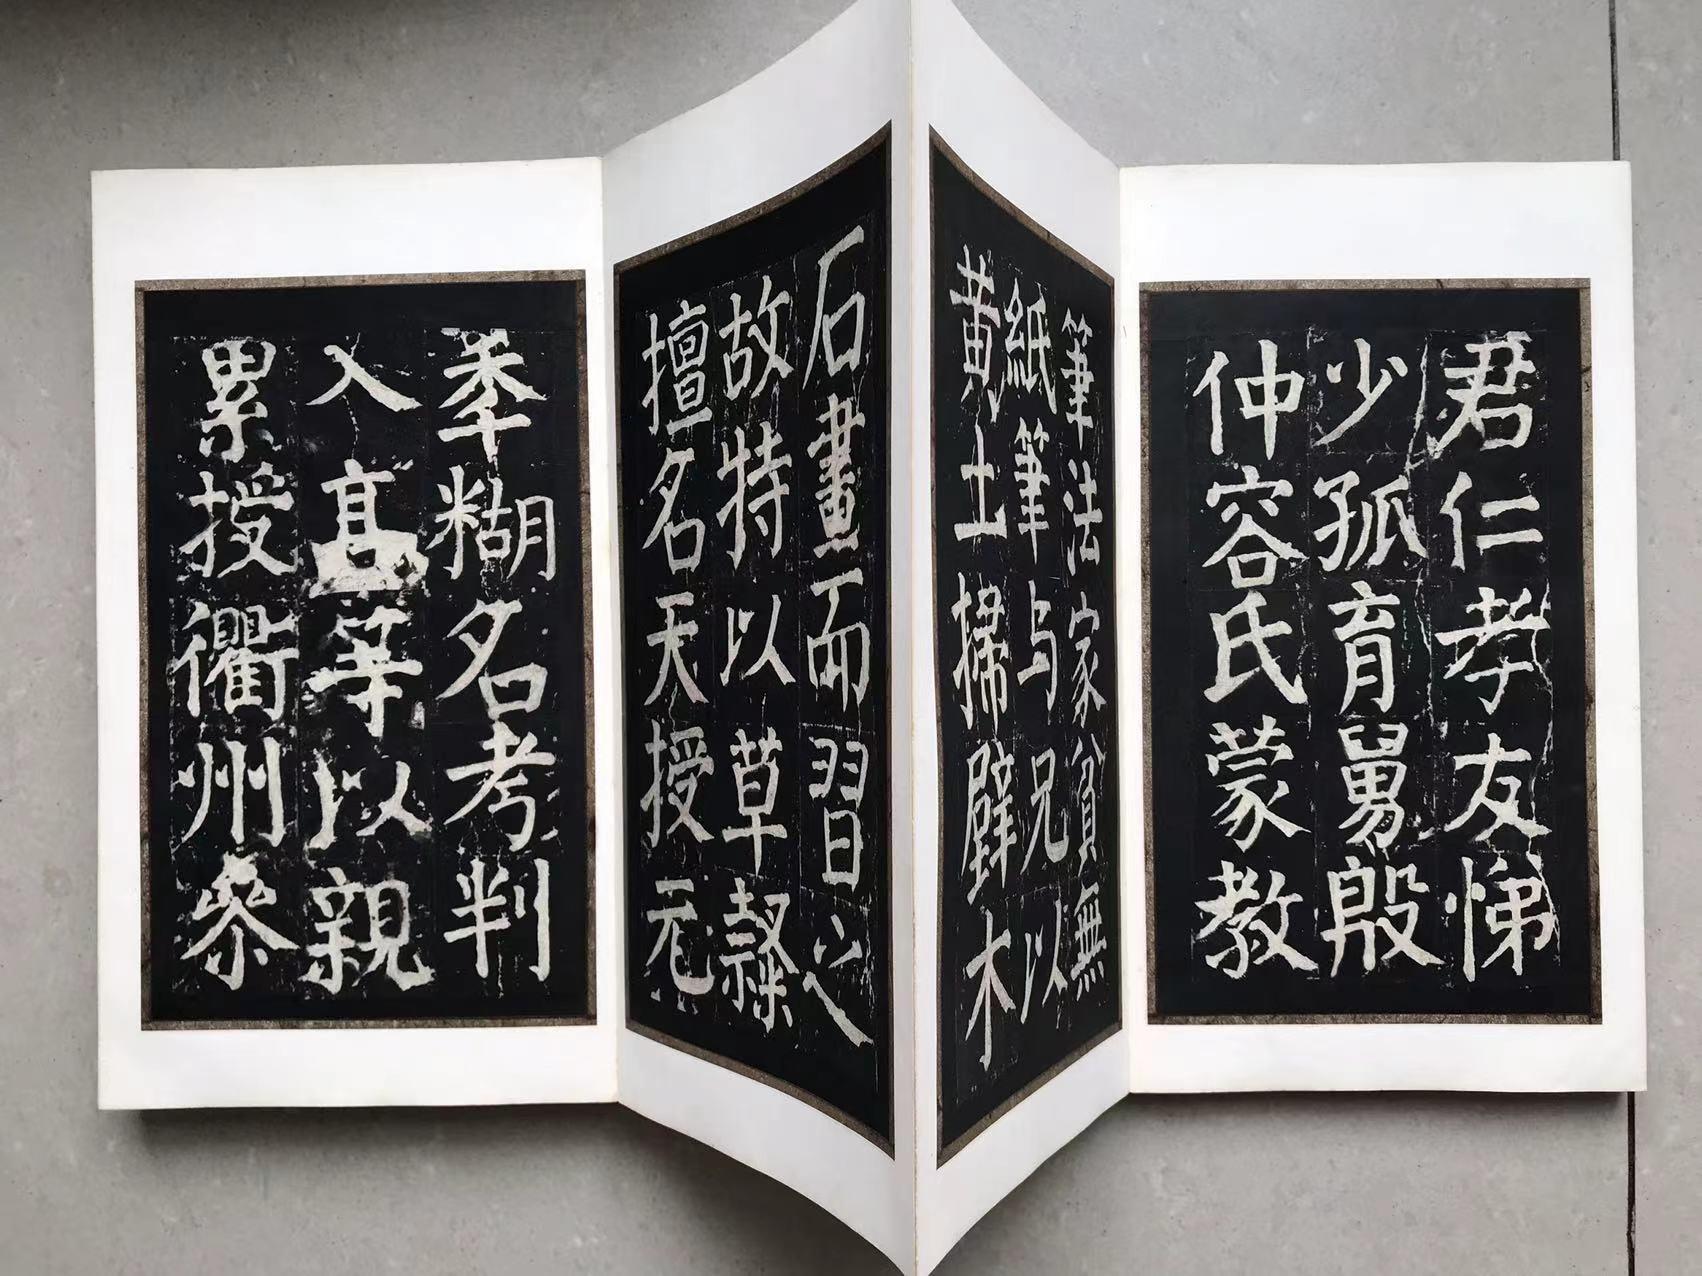 君仁孝友悌
少孤育舅殷
仲容氏蒙教
筆法家貧無
紙筆与兄以
黄土掃壁木
石畫而習之
故特以草隸
擅名天授元
秊糊名考判
入髙等以親
累授衢州參